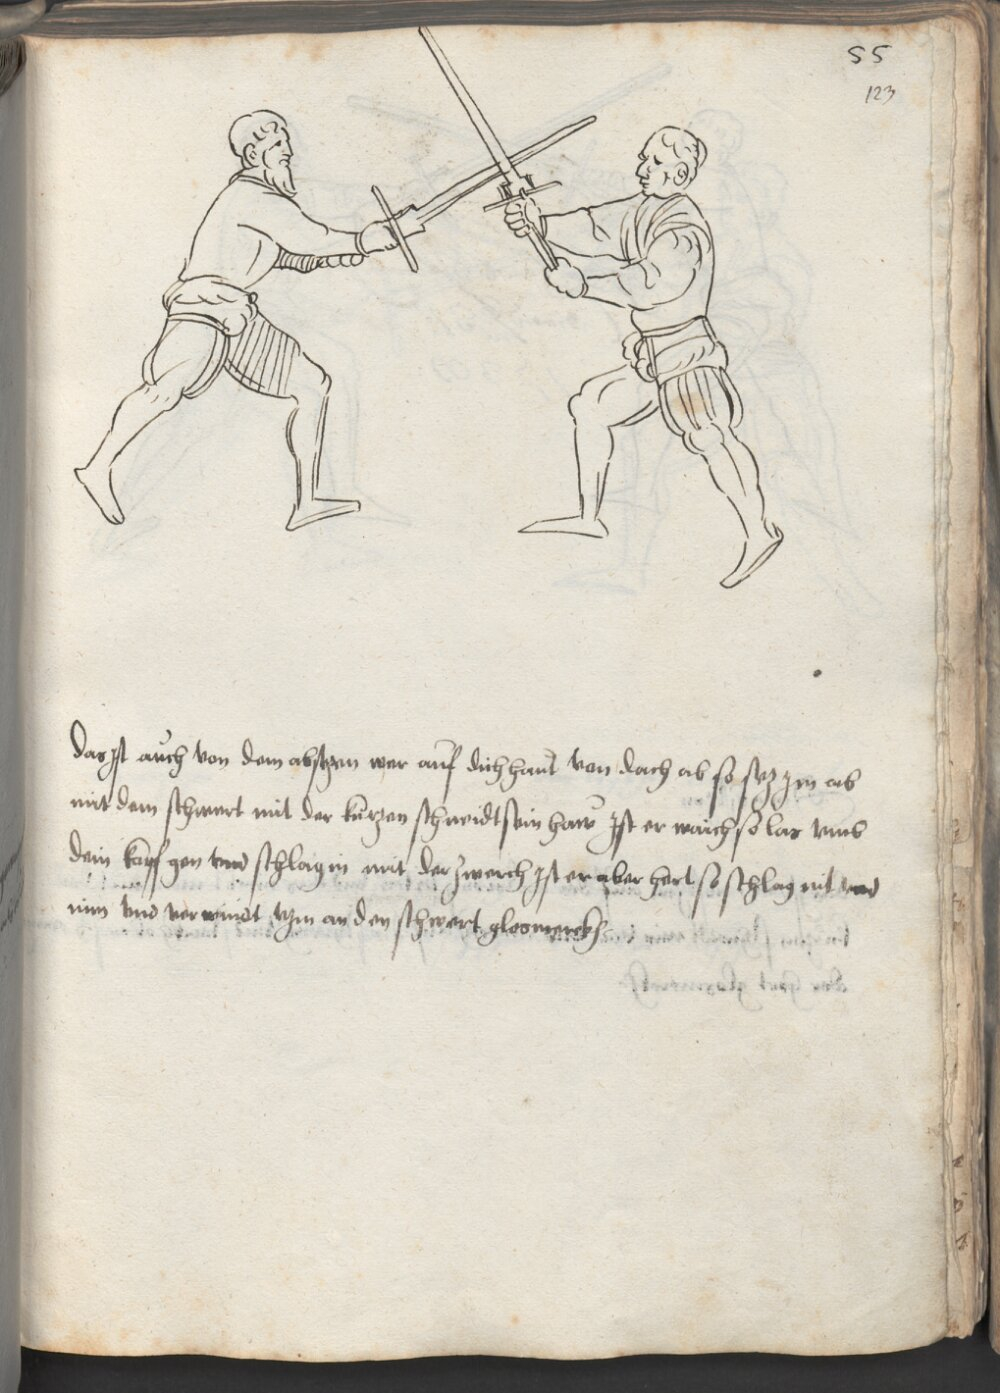 55
123
Das ist auch von dem absetzen wer auf dich haut von dach ab so setz Im ab
mit dem schwert mit der kurzen schneidt sein haw Ist er waich so las umb
dein kopf gen und schlag in mit der zwerch Ist er aber hert so schlag nit und
nim und verwindt Im an den schwert